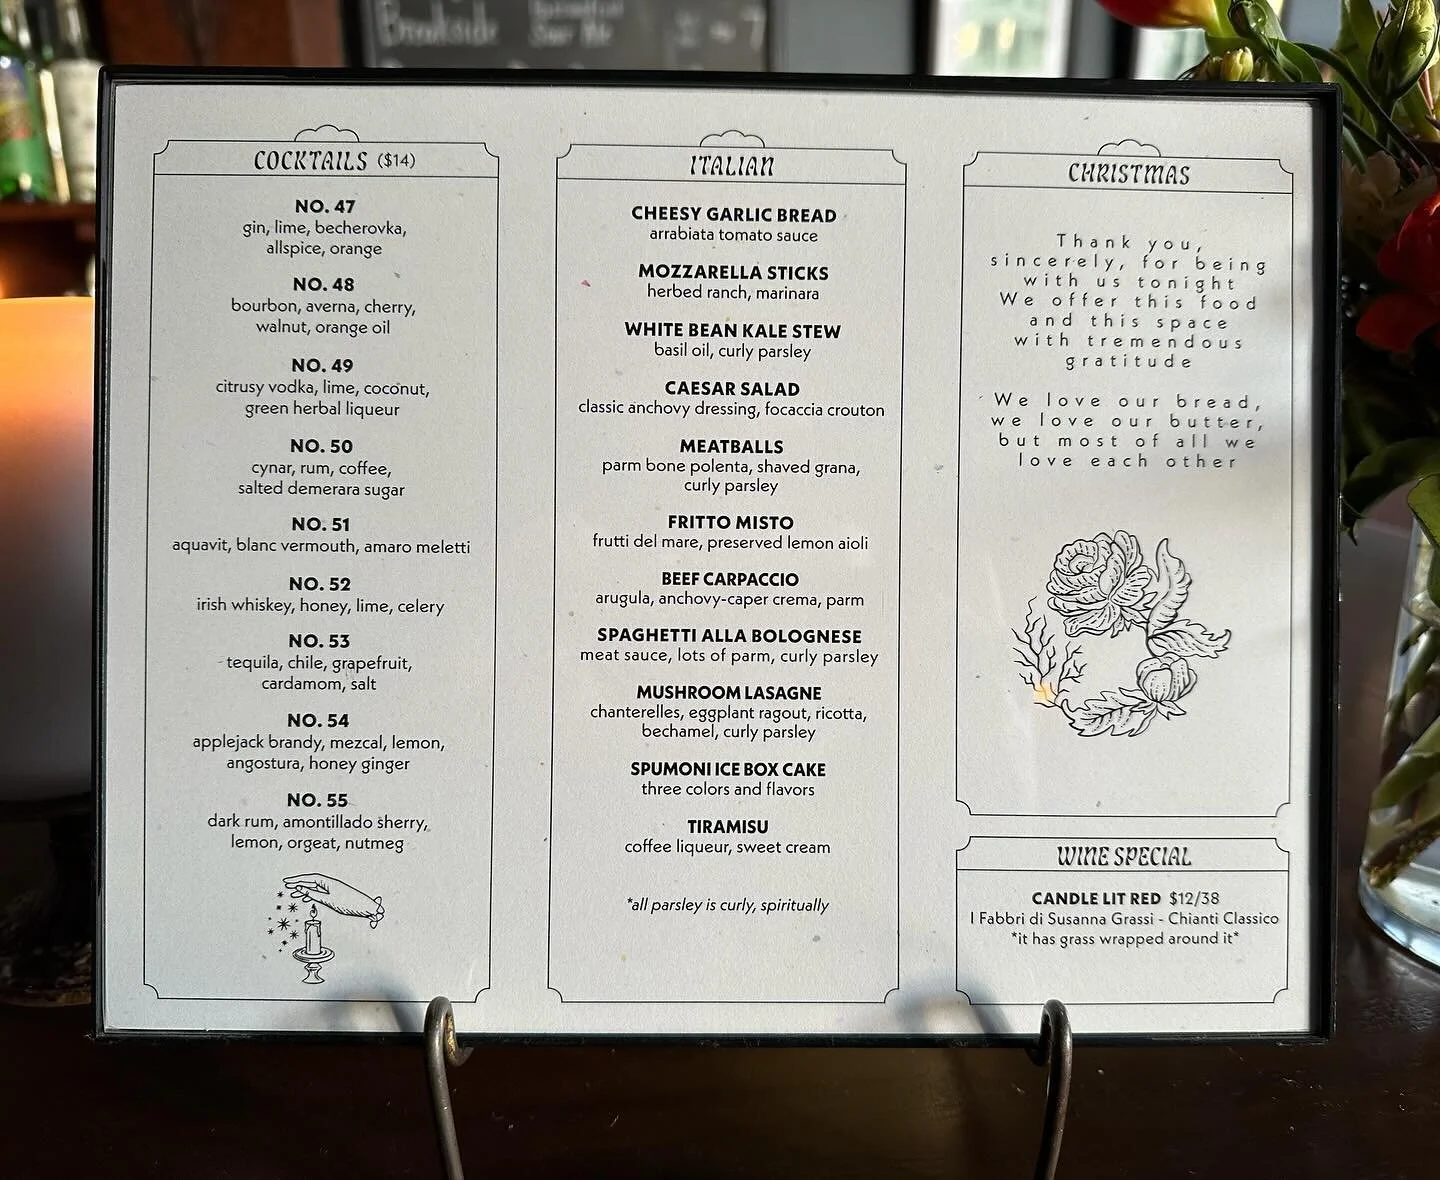 Brookside
COCKTAILS ($14)
NO. 47
gin, lime, becherovka,
allspice, orange
NO. 48
bourbon, averna, cherry,
walnut, orange oil
NO. 49
citrusy vodka, lime, coconut,
green herbal liqueur
NO. 50
cynar, rum, coffee,
salted demerara sugar
NO. 51
aquavit, blanc vermouth, amaro meletti
NO. 52
irish whiskey, honey, lime, celery
NO. 53
tequila, chile, grapefruit,
cardamom, salt
NO. 54
applejack brandy, mezcal, lemon,
angostura, honey ginger
NO. 55
dark rum, amontillado sherry,
lemon, orgeat, nutmeg
ITALIAN
CHEESY GARLIC BREAD
arrabiata tomato sauce
MOZZARELLA STICKS
herbed ranch, marinara
WHITE BEAN KALE STEW
basil oil, curly parsley
CAESAR SALAD
classic anchovy dressing, focaccia crouton
MEATBALLS
parm bone polenta, shaved grana,
curly parsley
FRITTO MISTO
frutti del mare, preserved lemon aioli
BEEF CARPACCIO
arugula, anchovy-caper crema, parm
SPAGHETTI ALLA BOLOGNESE
meat sauce, lots of parm, curly parsley
MUSHROOM LASAGNE
chanterelles, eggplant ragout, ricotta,
bechamel, curly parsley
SPUMONI ICE BOX CAKE
three colors and flavors
TIRAMISU
coffee liqueur, sweet cream
*all parsley is curly, spiritually
CHRISTMAS
Thank you,
sincerely, for being
with us tonight
We offer this food
and this space
with tremendous
gratitude
We love our bread,
we love our butter,
but most of all we
love each other
WINE SPECIAL
CANDLE LIT RED $12/38
I Fabbri di Susanna Grassi - Chianti Classico
*it has grass wrapped around it*